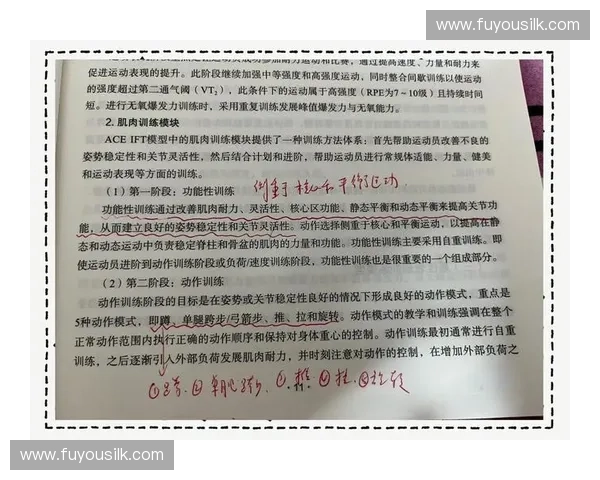 www.fuyousilk.com
促进运动表现的提升。此阶段继续加强中等强度和高强度运动，同时整合间歇训练以使运动
的强度超过第二通气阈（VT₂），此条件下的运动属于高强度（RPE为7～10级）且持续时间
短。进行无氧爆发力训练时，采用重复训练发展峰值爆发力与无氧能力。
2. 肌肉训练模块
ACE IFT模型中的肌肉训练模块提供了一种训练方法体系：首先帮助运动员改善不良的
姿势稳定性和关节灵活性，然后结合计划和进阶，帮助运动员进行常规体适能、力量、健美
和运动表现等方面的训练。
（1）第一阶段：功能性训练 侧重于核心和平衡运动
功能性训练通过改善肌肉耐力、灵活性、核心区功能、静态平衡和动态平衡来提高关节功
能，从而建立良好的姿势稳定性和关节灵活性。动作选择侧重于核心和平衡运动，以提高在静
态和动态运动中负责稳定脊柱和骨盆的肌肉的力量和功能。功能性训练主要采用自重训练。即
使运动员进阶到动作训练阶段或负荷/速度训练阶段，功能性训练也是很重要的一个组成部分。
（2）第二阶段：动作训练
动作训练阶段的目标是在姿势或关节稳定性良好的情况下形成良好的动作模式，重点是
5种动作模式，即蹲、单腿跨步/弓箭步、推、拉和旋转。动作模式的教学和训练强调在整个
正常动作范围内执行正确的动作顺序和保持对身体重心的控制。动作训练最初通常进行自重
训练，之后逐渐引入外部负荷发展肌肉耐力，并时刻注意对动作的控制，在增加外部负荷之
www.fuyousilk.com